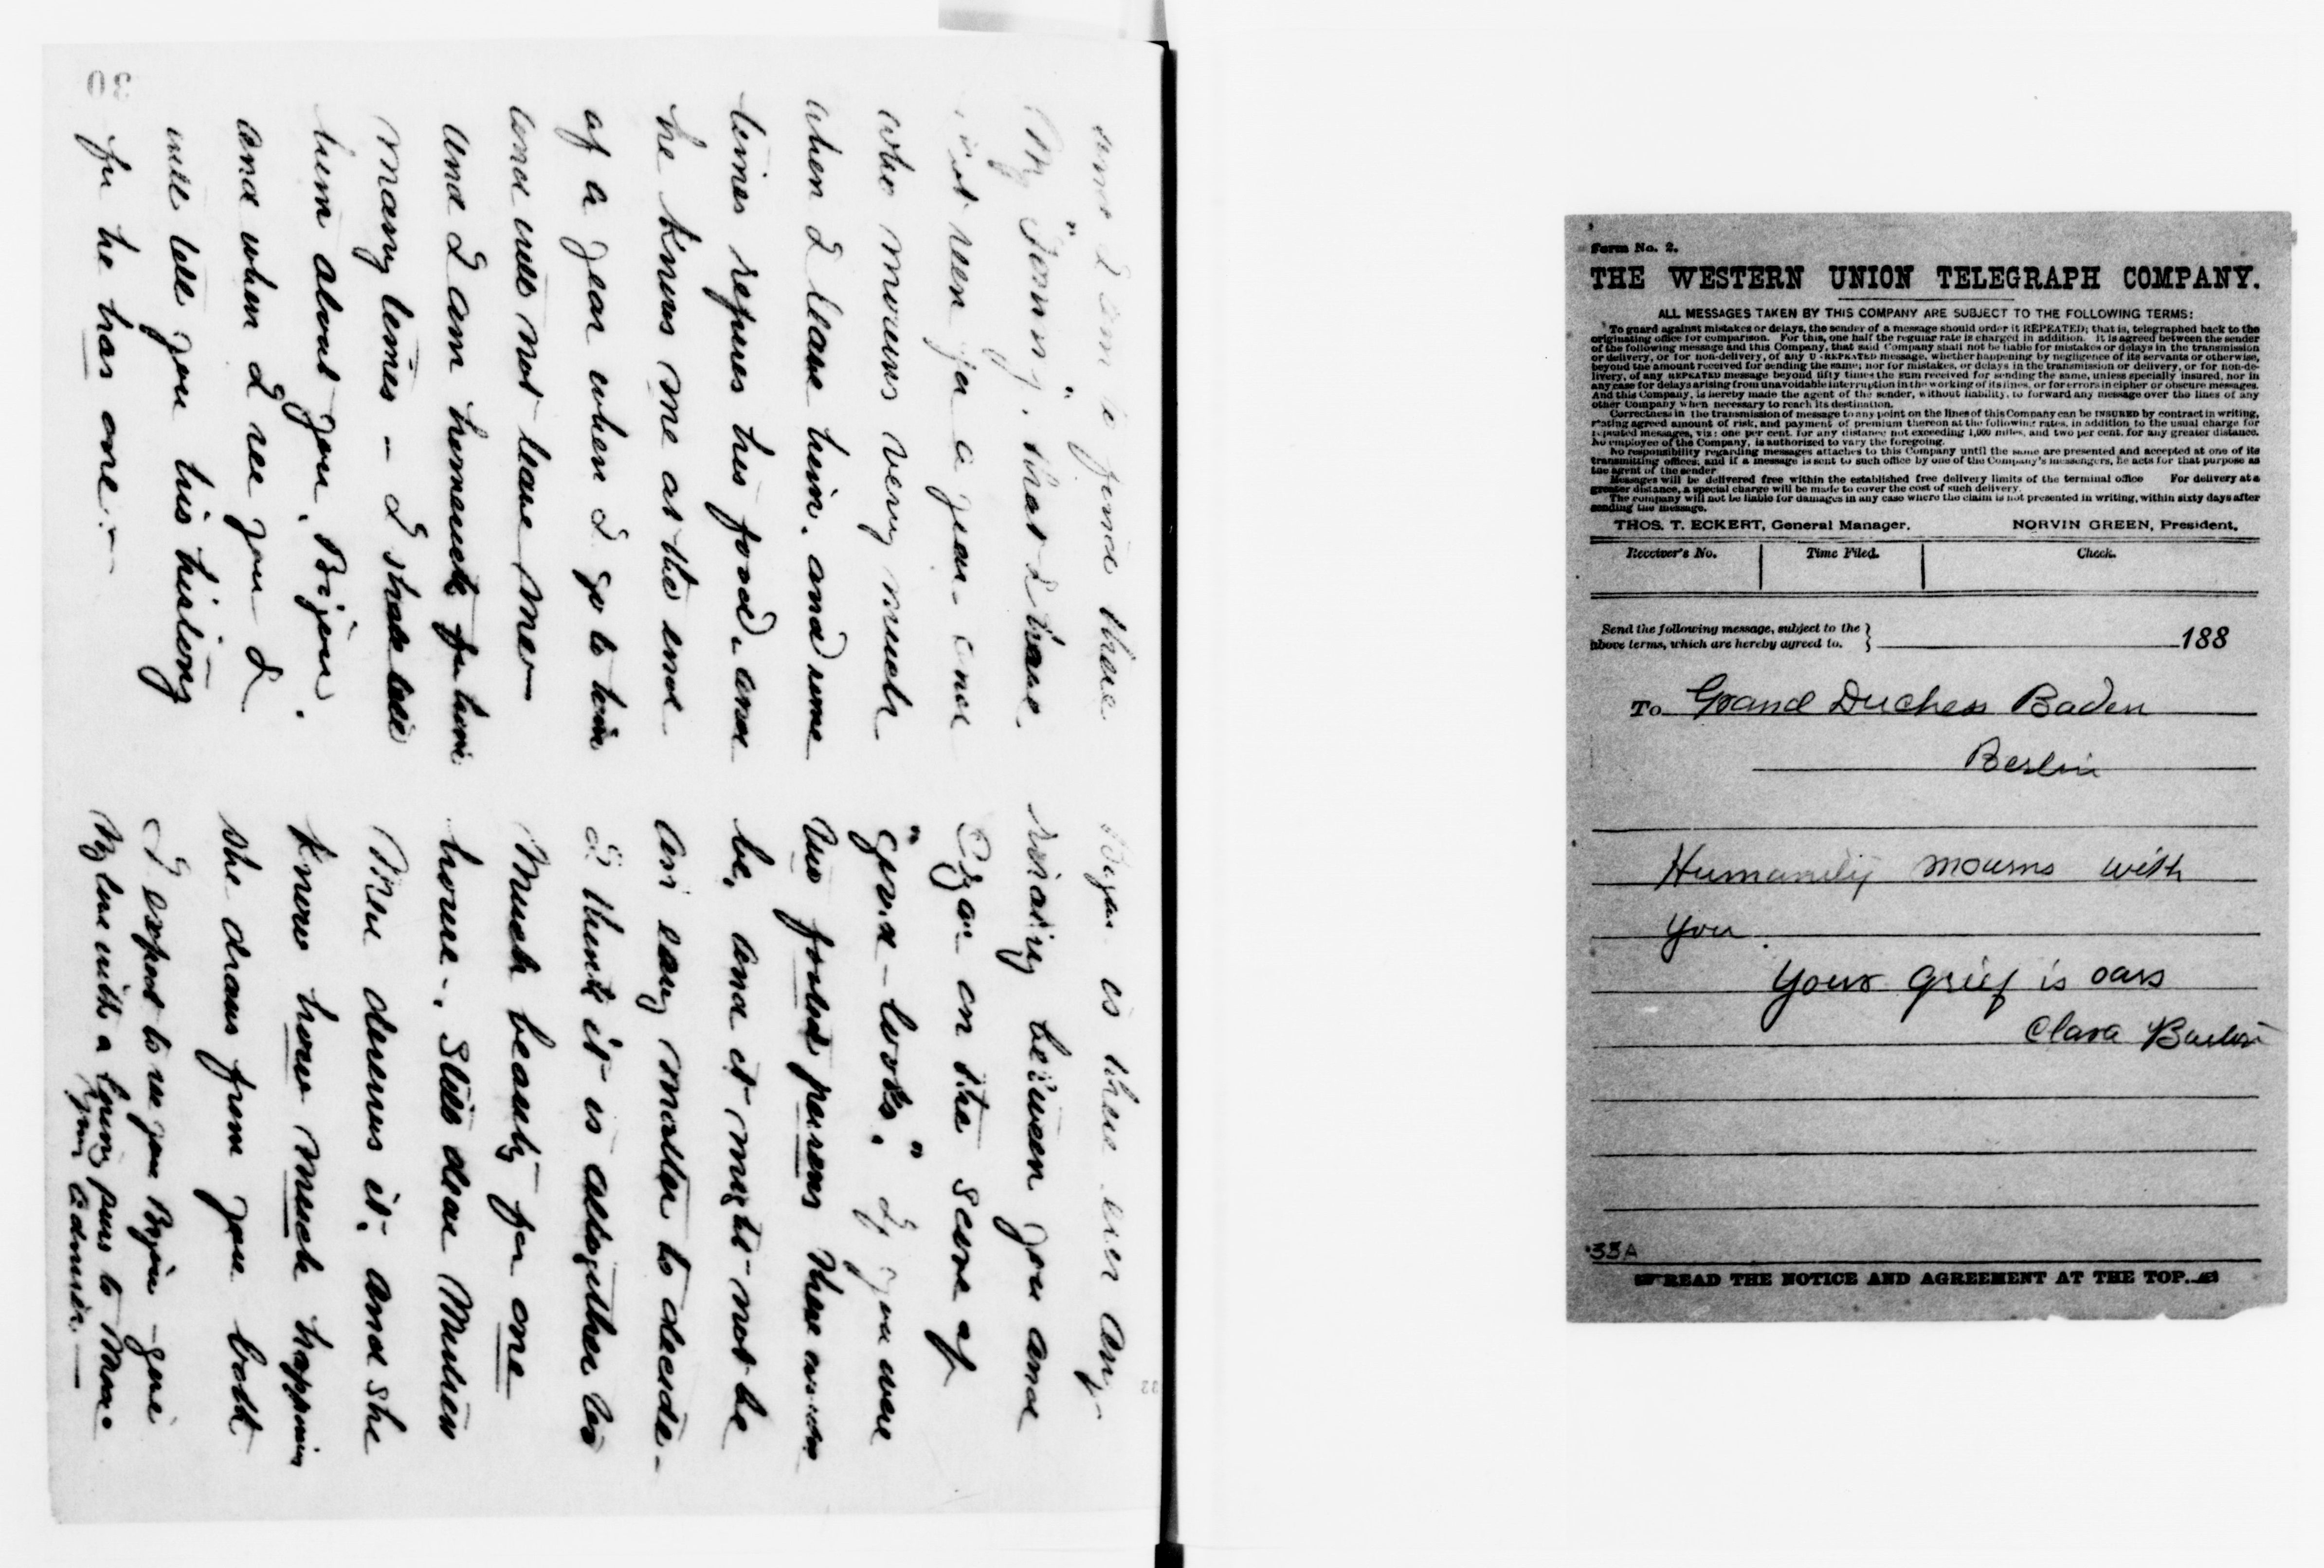 30
and I am to find there
My "Tommy". that I have
not seen for a year - one
who mourns very much
when I leave him, and some
times refuses his food, and
he knows me at the end
of a year when I go to him
and will not leave me -
and I am homesick for him
many times - I shall tell
him about you, Bijou.
and when I see you I
will tell you his history
for he has one. -
is there ever any
rivalry between you and
Edgar on the score of
"good-looks". If you were
two persons there
be, and it might not be
an easy matter to decide -
I think it is altogether too
much beauty for one
home -. Still dear
deserves it, and she
know how much happiness
she draws from you both
I expect to see you Bijou - give
My love with a loving purr to
Your Admirer. -
22
Form No. 2.
THE WESTERN UNION TELEGRAPH COMPANY.
ALL MESSAGES TAKEN BY THIS COMPANY ARE SUBJECT TO THE FOLLOWING TERMS:
To guard against mistakes or delays, the sender of a message should order it REPEATED; that is, telegraphed back to the
originating office for comparison. For this, one half the regular rate is charged in addition. It is agreed between the sender
of the following message and this Company, that said Company shall not be liable for mistakes or delays in the transmission
or delivery, or for non-delivery, of any UNREPEATED message, whether happening by negligence of its servants or otherwise,
beyond the amount received for sending the same; nor for mistakes, or delays in the transmission or delivery, or for non-de-
livery, of any REPEATED message beyond fifty times the sum received for sending the same, unless specially insured, nor in
any case for delays arising from unavoidable interruption in the working of its lines, or for errors in cipher or obscure messages.
And this Company, is hereby made the agent of the sender, without liability, to forward any message over the lines of any
other Company when necessary to reach its destination.
Correctness in the transmission of message to any point on the lines of this Company can be INSURED by contract in writing,
stating agreed amount of risk, and payment of premium thereon at the following rates, in addition to the usual charge for
repeated messages, viz: one per cent. for any distance not exceeding 1,000 miles, and two per cent. for any greater distance.
No employee of the Company, is authorized to vary the foregoing.
No responsibility regarding messages attaches to this Company until the same are presented and accepted at one of its
transmitting offices; and if a message is sent to such office by one of the Company's messengers, he acts for that purpose as
the agent of the sender
Messages will be delivered free within the established free delivery limits of the terminal office For delivery at a
greater distance, a special charge will be made to cover the cost of such delivery.
The company will not be liable for damages in any case where the claim is not presented in writing, within sixty days after
sending the message.
THOS. T. ECKERT, General Manager. NORVIN GREEN, President.
Receiver's No. Time Filed. Check.
Send the following message, subject to the
above terms, which are hereby agreed to. 188
To Grand Duchess Baden
Berlin
Humanity mourns with
you.
Your grief is ours
Clara Barton
33A
READ THE NOTICE AND AGREEMENT AT THE TOP.